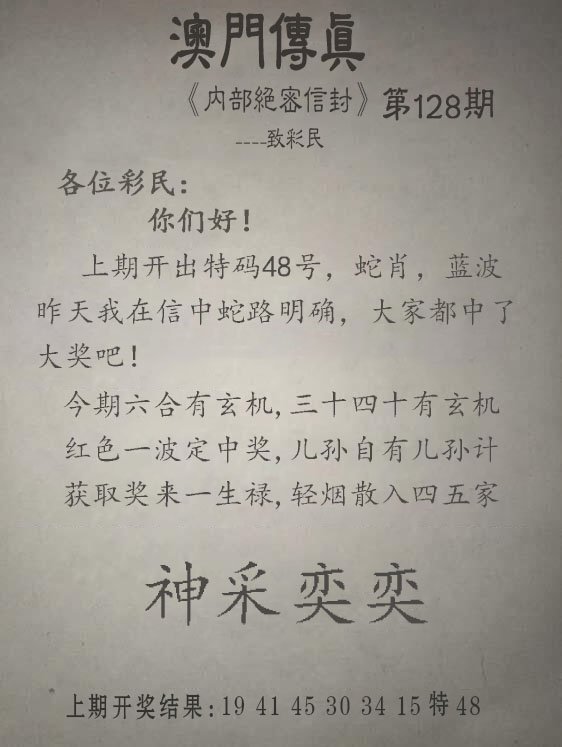 澳門傳眞
《内部絕密信封》第128期
----致彩民
各位彩民：
你们好！
上期开出特码48号，蛇肖，蓝波
昨天我在信中蛇路明确，大家都中了
大奖吧！
今期六合有玄机,三十四十有玄机
红色一波定中奖,儿孙自有儿孙计
获取奖来一生禄,轻烟散入四五家
神采奕奕
上期开奖结果:19 41 45 30 34 15特48